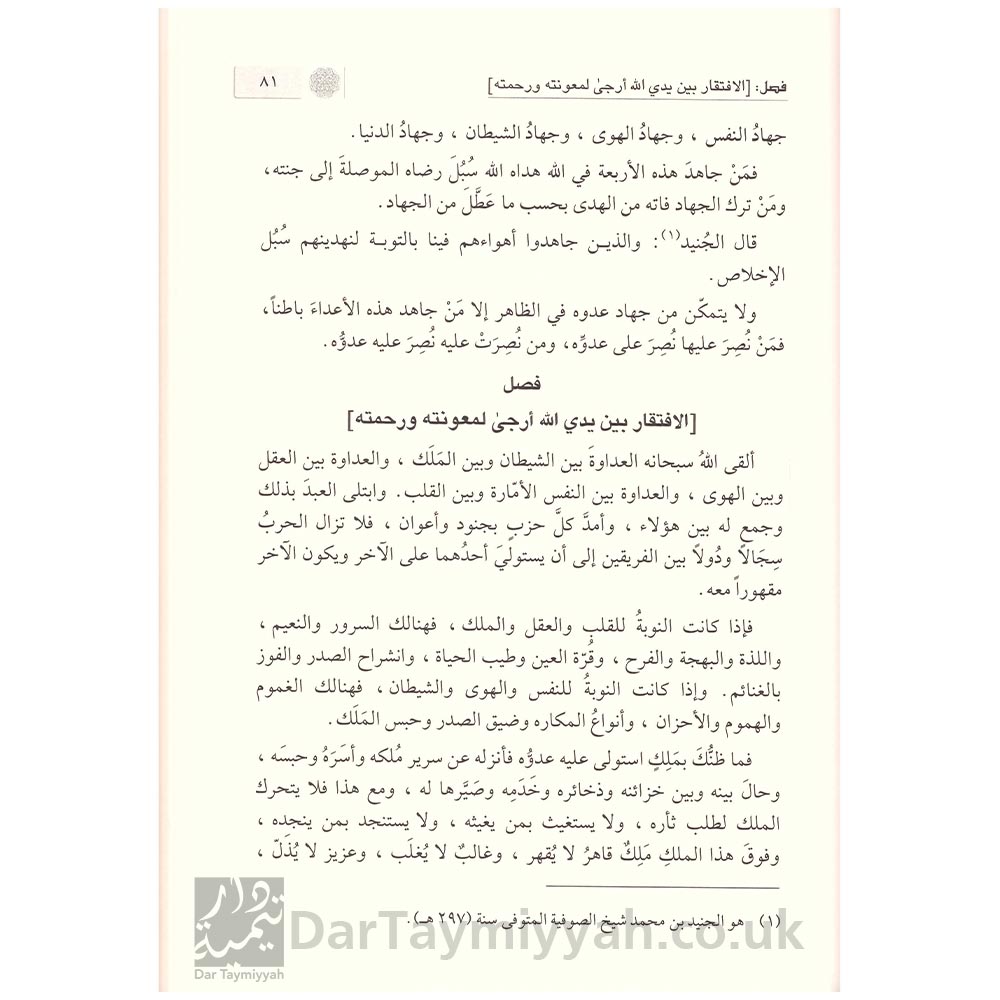 فصل: [الافتقار بين يدي الله أرجىٰ لمعونته ورحمته] ٨١
جهادُ النفس ، وجهادُ الهوى ، وجهادُ الشيطان ، وجهادُ الدنيا.
فمَنْ جاهدَ هذه الأربعة في الله هداه الله سُبُلَ رضاه الموصلةَ إلى جنته،
ومَنْ ترك الجهاد فاته من الهدى بحسب ما عَطَّلَ من الجهاد.
قال الجُنيد(١): والذين جاهدوا أهواءهم فينا بالتوبة لنهدينهم سُبُل
الإخلاص.
ولا يتمكّن من جهاد عدوه في الظاهر إلا مَنْ جاهد هذه الأعداءَ باطناً،
فمَنْ نُصِرَ عليها نُصِرَ على عدوِّه، ومن نُصِرَتْ عليه نُصِرَ عليه عدوُّه.
فصل
[الافتقار بين يدي الله أرجىٰ لمعونته ورحمته]
ألقى اللهُ سبحانه العداوةَ بين الشيطان وبين المَلَك ، والعداوة بين العقل
وبين الهوى ، والعداوة بين النفس الأمّارة وبين القلب. وابتلى العبدَ بذلك
وجمع له بين هؤلاء ، وأمدَّ كلَّ حزبٍ بجنود وأعوان ، فلا تزال الحربُ
سِجَالاً ودُولاً بين الفريقين إلى أن يستوليَ أحدُهما على الآخر ويكون الآخر
مقهوراً معه.
فإذا كانت النوبةُ للقلب والعقل والملك ، فهنالك السرور والنعيم ،
واللذة والبهجة والفرح ، وقُرّة العين وطيب الحياة ، وانشراح الصدر والفوز
بالغنائم. وإذا كانت النوبةُ للنفس والهوى والشيطان، فهنالك الغموم
والهموم والأحزان ، وأنواعُ المكاره وضيق الصدر وحبس المَلَك.
فما ظنُّكَ بمَلِكٍ استولى عليه عدوُّه فأنزله عن سرير مُلكه وأسَرَهُ وحبسَه ،
وحالَ بينه وبين خزائنه وذخائره وخَدَمِه وصَيَّرها له ، ومع هذا فلا يتحرك
الملك لطلب ثأره ، ولا يستغيث بمن يغيثه ، ولا يستنجد بمن ينجده ،
وفوقَ هذا الملكِ مَلِكٌ قاهرُ لا يُقهر ، وغالبٌ لا يُغلَب ، وعزيز لا يُذَلّ ،
(١) هو الجنيد بن محمد شيخ الصوفية المتوفى سنة (٢٩٧ هـ).
دار تيمية
Dar Taymiyyah
DarTaymiyyah.co.uk